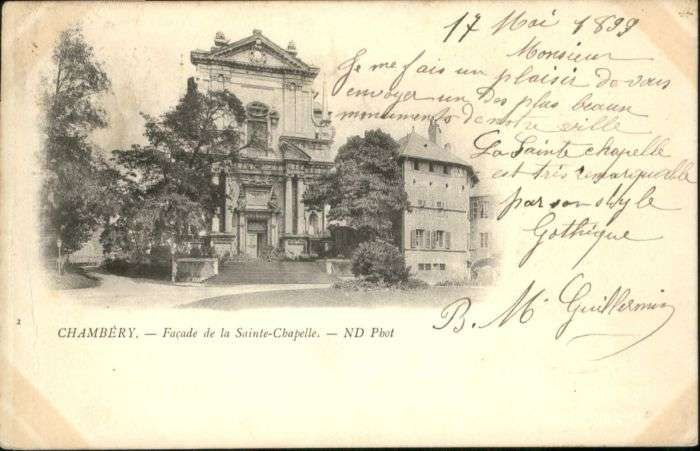 17 Mai 1899
Monsieur
Je me fais un plaisir de vous
envoyer un des plus beaux
monuments de notre ville
La Sainte chapelle
est très remarquable
par son style
Gothique
B. M. Guillermin
2
CHAMBÉRY. — Façade de la Sainte-Chapelle. — ND Phot